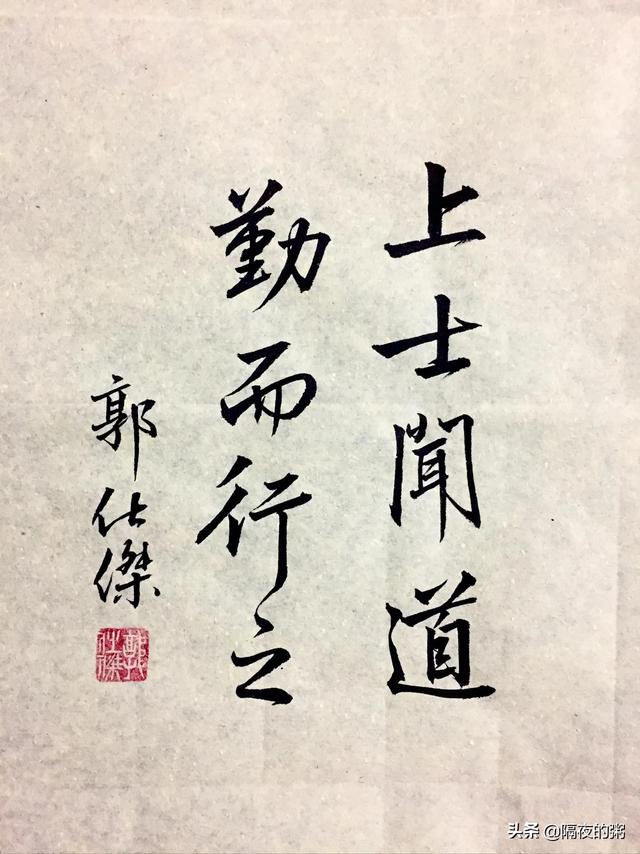 上士聞道
勤而行之
郭仕傑
郭仕傑
头条 @隔夜的粥